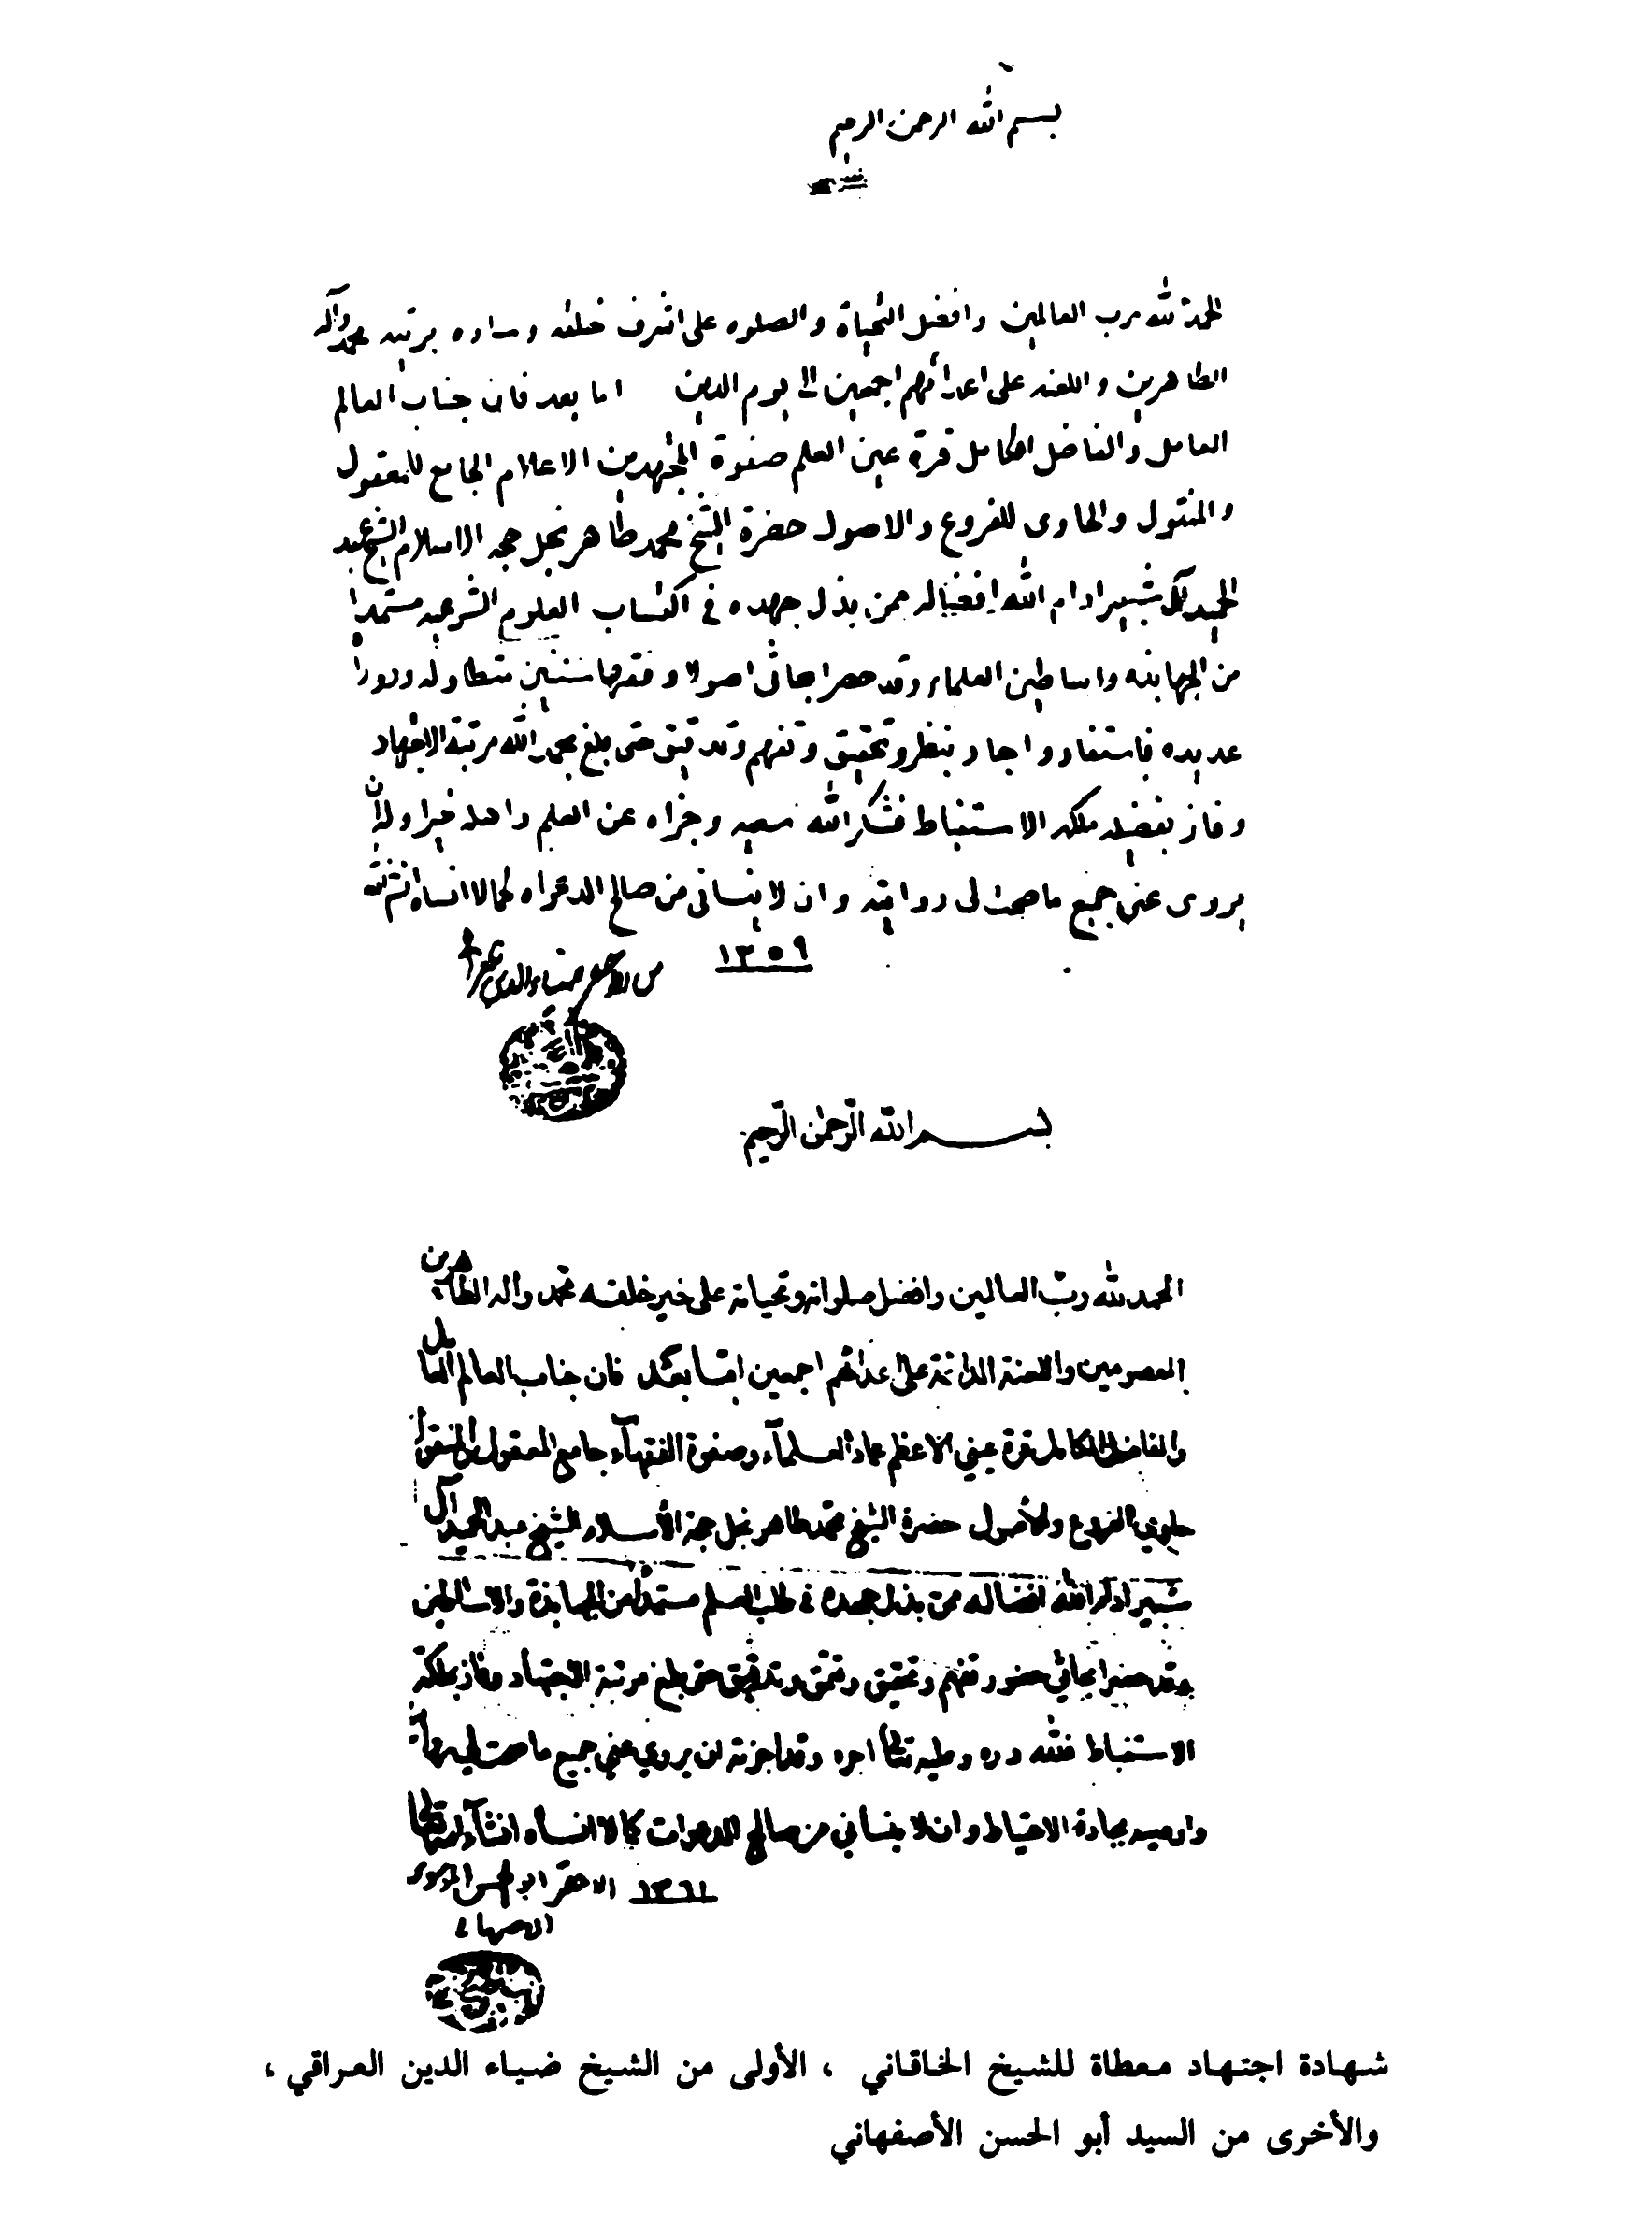 بسم الله الرحمن الرحيم
الحمد لله رب العالمين وافضل التحياة والصلوه على اشرف خلقه وساده بريته محمد وآله
الطاهرين واللعنه على اعدائهم اجمعين الى يوم الدين اما بعد فان جناب العالم
العامل والفاضل الكامل قرة عين العلم صفوة المجتهدين الاعلام الجامع للمعقول
والمنقول والحاوى للفروع والاصول حضرة الشيخ محمد طاهر نجل حجه الاسلام الشيخ عبد
الحميد آل شبير ادام الله افضاله ممن بذل جهده فى اكتساب العلوم الشرعيه مستمدا
من الجهابذه واساطين العلماء وقد حضر ابحاثى اصولا وفقها سنين متطاوله ودورا
عديده فاستفاد واجاد بنظر وتحقيق وتفهم وتدقيق حتى بلغ بحمد الله مرتبة الاجتهاد
وفاز بفضيله ملكه الاستنباط فشكر الله سعيه وجزاه عن العلم واهله خيرا وله ان
يروى عنى جميع ما صحت لى روايته وان لا ينسانى من صالح الدعواه كما لا انساه انشالله
١٣٥٩
من الاحقر ضياء الدين العراقى
بسم الله الرحمن الرحيم
الحمد لله رب العالمين وافضل صلواته وتحياته على خير خلقه محمد واله الطاهرين
المعصومين واللعنة الدائمة على اعدائهم اجمعين اما بعد فان جناب العالم العامل
والفاضل الكامل قرة عيني الاعظم عماد العلماء وصفوة الفقهاء جامع المعقول والمنقول
حاوي الفروع والأصول حضرة الشيخ محمد طاهر نجل حجة الأسلام الشيخ عبد الحميد آل
شبير ادام الله افضاله ممن بذل جهده في طلب العلم مستمدا من الجهابذة والاساطين
وقد حضر ابحاثي حضور تفهم وتحقيق وتعمق وتدقيق حتى بلغ مرتبة الاجتهاد وفاز بملكة
الاستنباط فلله دره وعليه تعالى اجره وقد اجزته ان يروي عني جميع ما صحت لي روايته
واوصيه بجادة الاحتياط وان لا ينساني من صالح الدعوات كما لا انساه انشآء الله تعالى
١٣٦١ الاحقر ابو الحسن الموسوى
الاصفهانى
شهادة اجتهاد معطاة للشيخ الخاقاني ، الأولى من الشيخ ضياء الدين العراقي ،
والأخرى من السيد أبو الحسن الأصفهاني